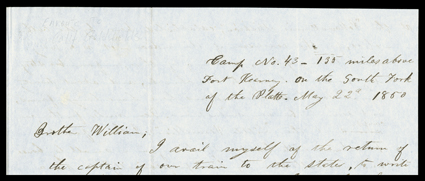 Camp No. 43 - 135 miles above
Fort Kearny. on the South Fork
of the Platte May 22d 1850
Brother William;
I avail myself of the return of
the captain of our train to the state, to write